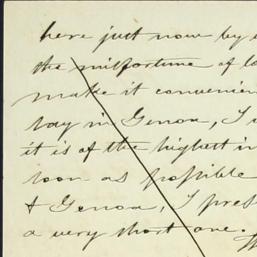 here just now by
the misfortune of lo
make it convenien
say in Genoa, I
it is of the highest in
soon as possible
& Genoa, I pres
a very short one.